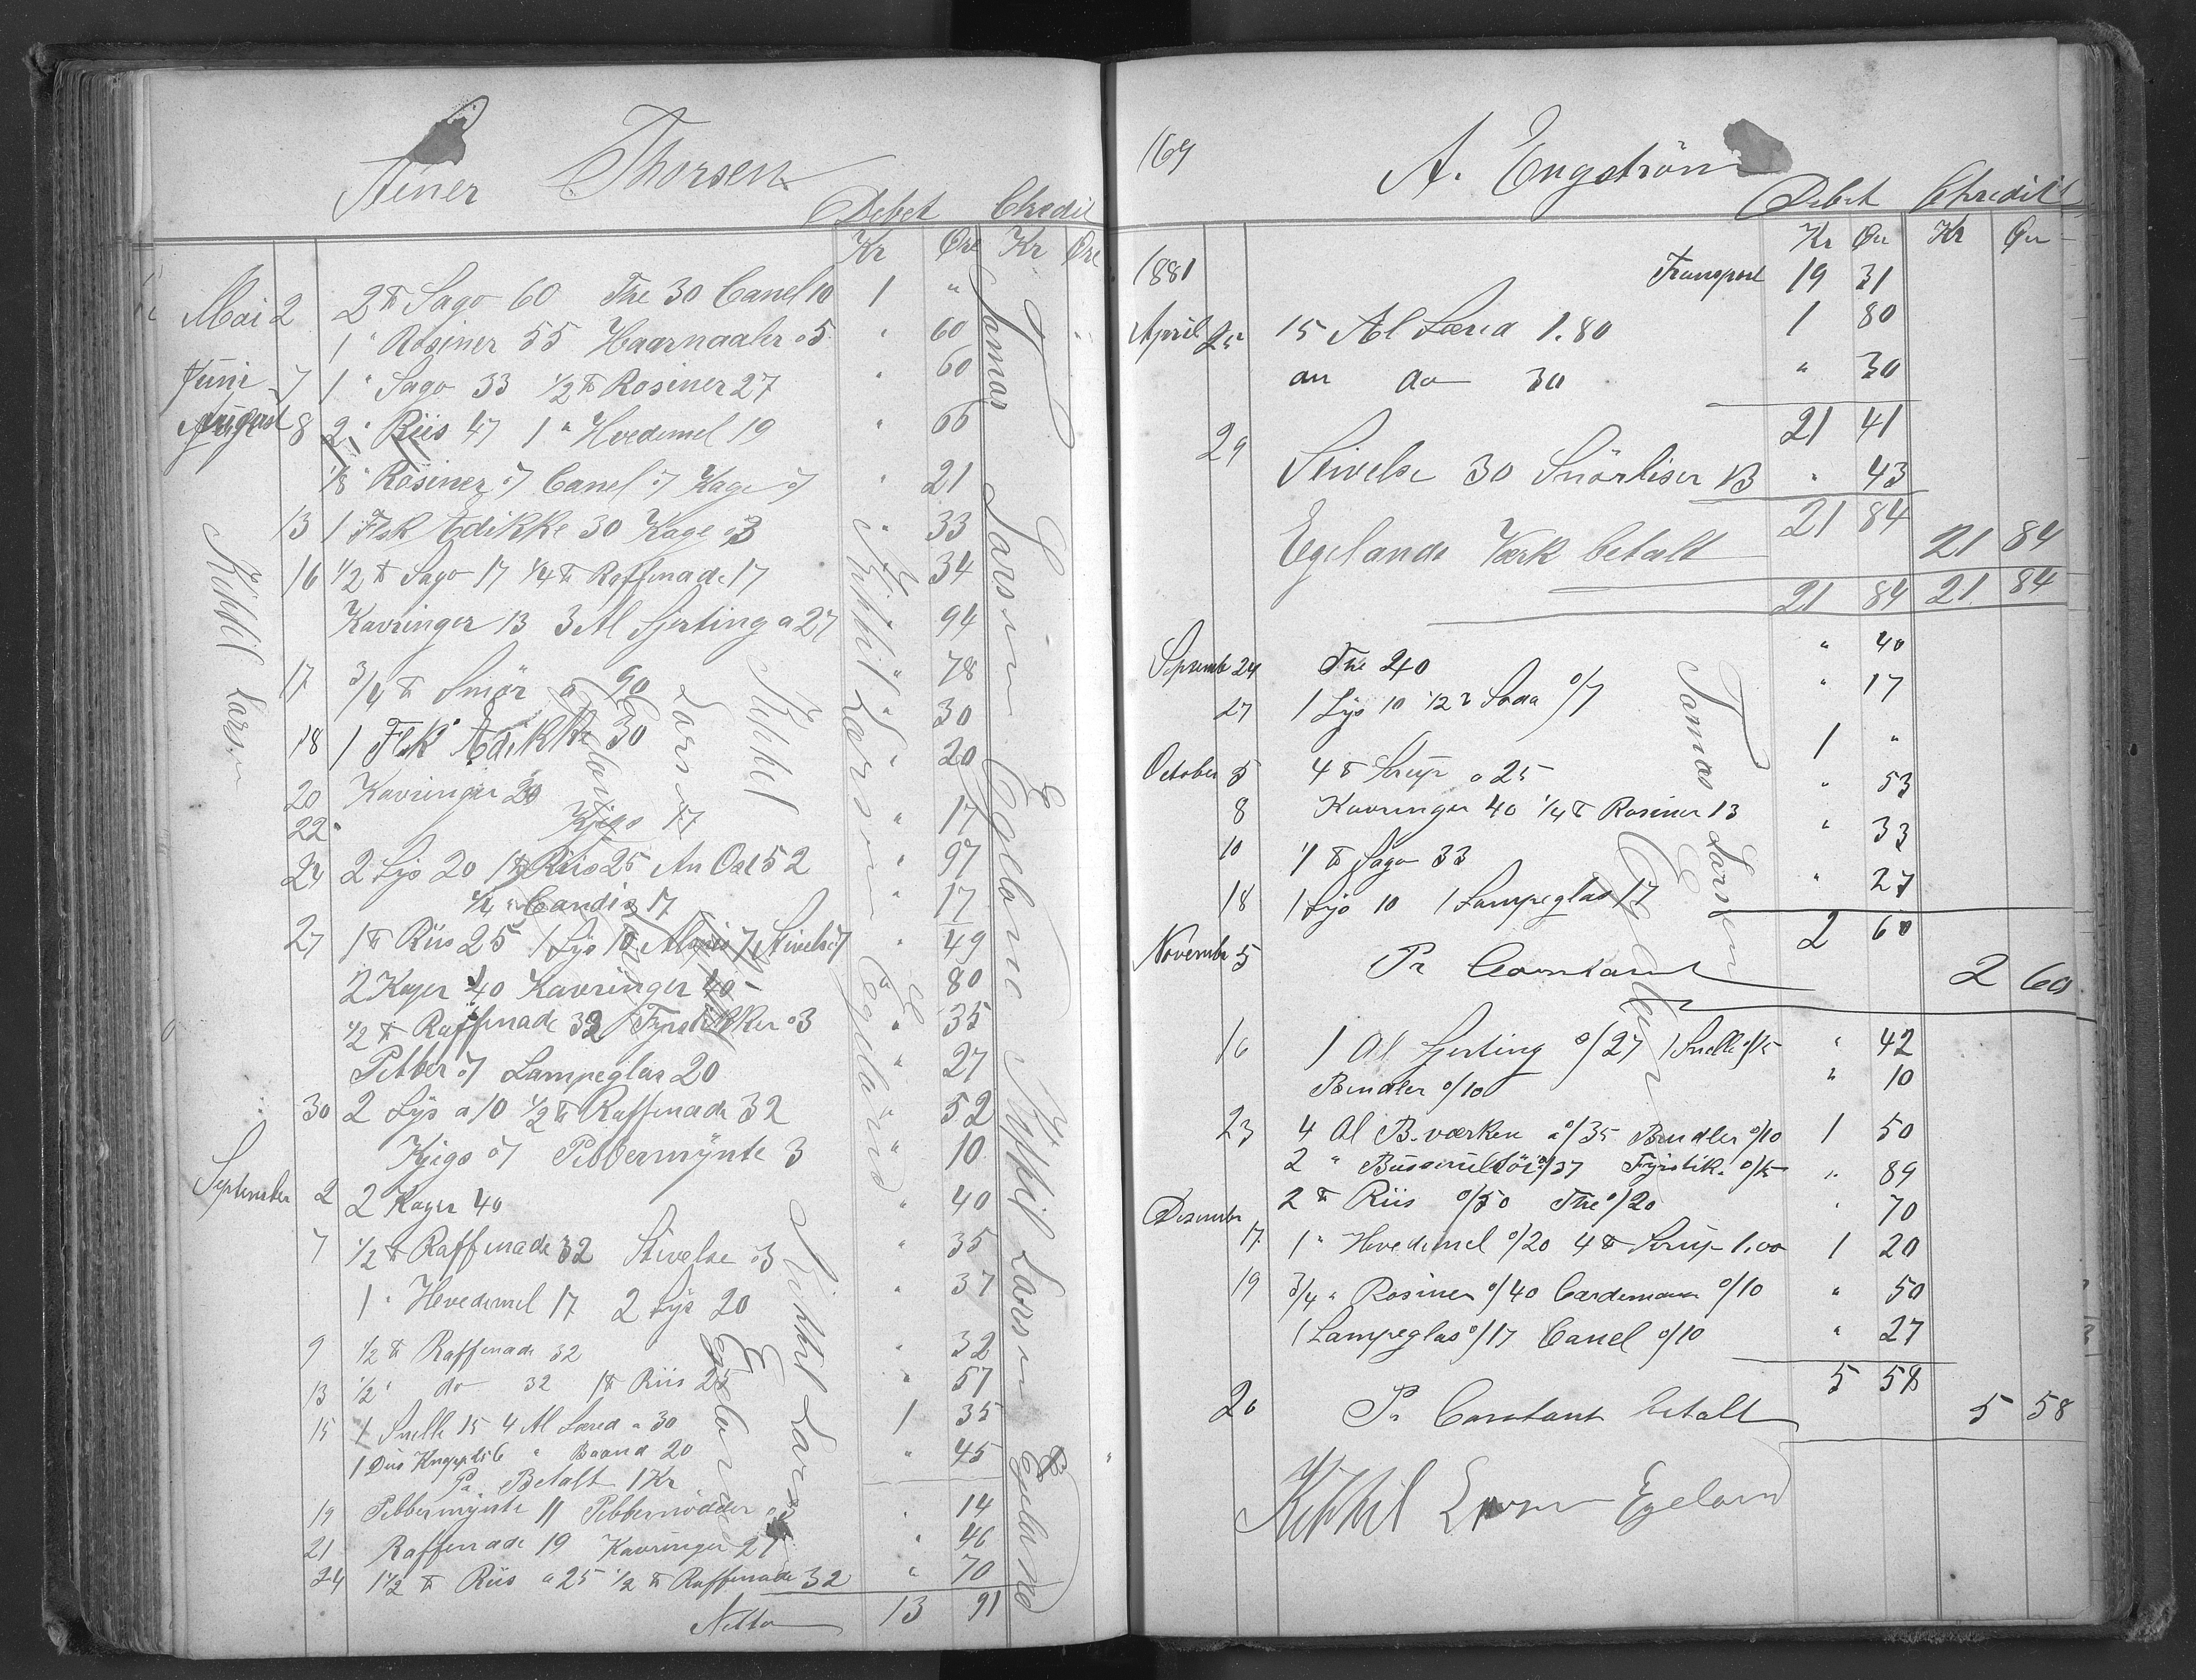 Thorsen
Debet Chredit
Kr Øre Kr Øre
Mai 2 2 ℔ Sago 60 The 30 Canel 10 1 "
1 " Rosiner 55 Haarnaaler 05 " 60
Juni 7 1 " Sago 33 1/2 ℔ Rosiner 27 " 60
August 8 2 " Riis 47 1 " Hvedemel 19 " 66
1/8 " Rosiner 07 Canel 07 Kage 07 " 21
13 1 Flsk Edikke 30 Kage 03 " 33
16 1/2 ℔ Sago 17 1/4 ℔ Raffinade 17 " 34
Kavringer 13 3 Al Sjerting a 27 94
17 3/4 ℔ Smør a 90 " 78
18 1 Flsk Edikke 30 " 30
20 Kavringer 20 " 20
22 Kjigs 17 " 17
24 2 Lys 20 1 ℔ Riis 25 An Ost 52 " 97
1/4 " Candis 17 " 17
27 1 ℔ Riis 25 1 Lys 10 7 Stivelse 7 " 49
2 Kager 40 Kavringer 40 " 80
1/2 ℔ Raffinade 32 Fyrstikker 03 " 35
Pebber 07 Lampeglas 20 " 27
30 2 Lys a 10 1/2 ℔ Raffinade 32 " 52
Kjigs 07 Pebbermÿnte 3 " 10
September 2 2 Kager 40 " 40
7 1/2 ℔ Raffinade 32 Stivelse 03 " 35
1 " Hvedemel 17 2 Lys 20 " 37
9 1/2 ℔ Raffinade 32 " 32
13 1/2 " do 32 1 ℔ Riis 25 " 57
15 1 Snelle 15 4 Al Læred a 30 1 35
1 Dus Baand 20 " 45
Pa Betalt 1 Kr
19 Pebbermynte 11 Pebbernødder 03 " 14
21 Raffinade 19 Kavringer 27 " 46
24 1 1/2 ℔ Riis a 25 1/2 ℔ Raffinade 32 " 70
Netto 13 91
Kittil Larsen
Kittil Larsen Egeland
Kittil Larsen Egeland
Kittil Larsen Egeland
Tamas Larsen Egeland Kittil Larsen Egeland
169
A. Engström
Debet Chredit
Kr Øre Kr Øre
1881 Transport 19 31
April 25 15 Al Lærred 1.80 1 80
an do 30 " 30
21 41
29 Stivelse 30 Snörliser 13 " 43
21 84
Egelands Værk betalt 21 84
21 84 21 84
Septembr 24 The 40 " 40
27 1 Lys 10 1/2 ℔ Soda 0/7 " 17
October 5 4 ℔ Sirup a 25 1 "
8 Kavringer 40 1/4 ℔ Rosiner 13 " 53
10 1 ℔ Sago 33 " 33
18 1 Lys 10 1 Lampeglas 17 " 27
2 60
November 5 Pr Constant 2 60
16 1 Al Sjerting 0/27 1 Snelle 0/15 " 42
Bendler 0/10 " 10
23 4 Al B.værken a 0/35 Bendler 0/10 1 50
2 " 0/37 Fyrstik. 0/15 " 89
2 ℔ Riis 0/50 The 0/20 " 70
Desember 17 1 " Hvedemel 0/20 4 ℔ Sirup 1.00 1 20
19 3/4 " Rosiner 0/40 Cardemome 0/10 " 50
1 Lampeglas 0/17 Canel 0/10 " 27
5 58
20 Pr Constant betalt 5 58
Tamas Larsen Egeland
Kittil Larsen Egeland